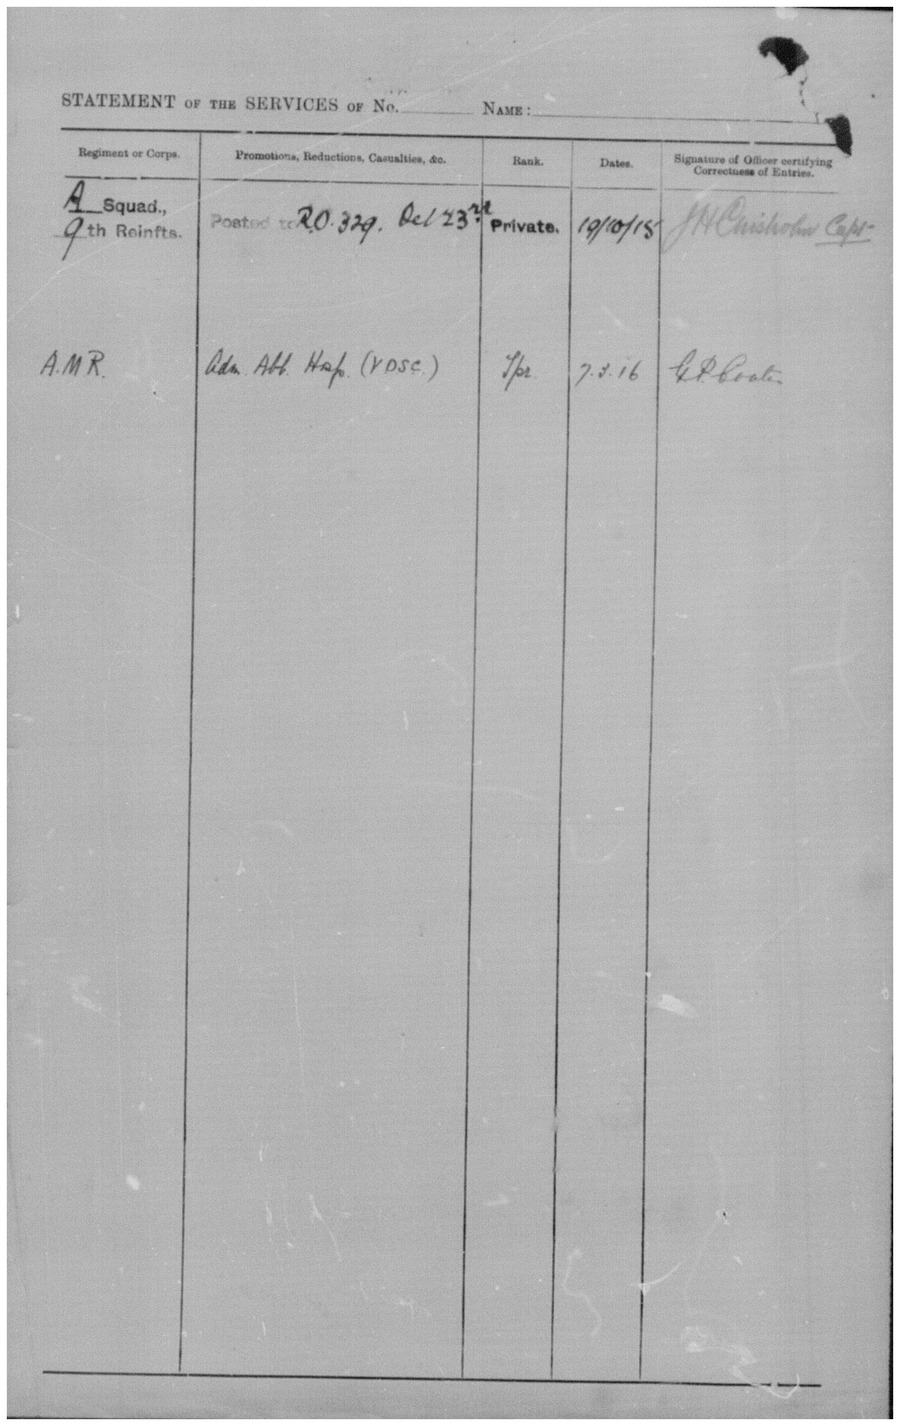 STATEMENT OF THE SERVICES OF No. NAME:
Regiment or Corps. Promotions, Reductions, Casualties, &c. Rank. Dates. Signature of Officer certifying
Correctness of Entries.
A Squad.,
9th Reinfts. Posted to R.O. 329. Oct 23rd Private. 19/10/15 JH Chisholm Capt
A.M.R. Adm. Abb. Hosp. (VDSC.) Tpr. 7.3.16